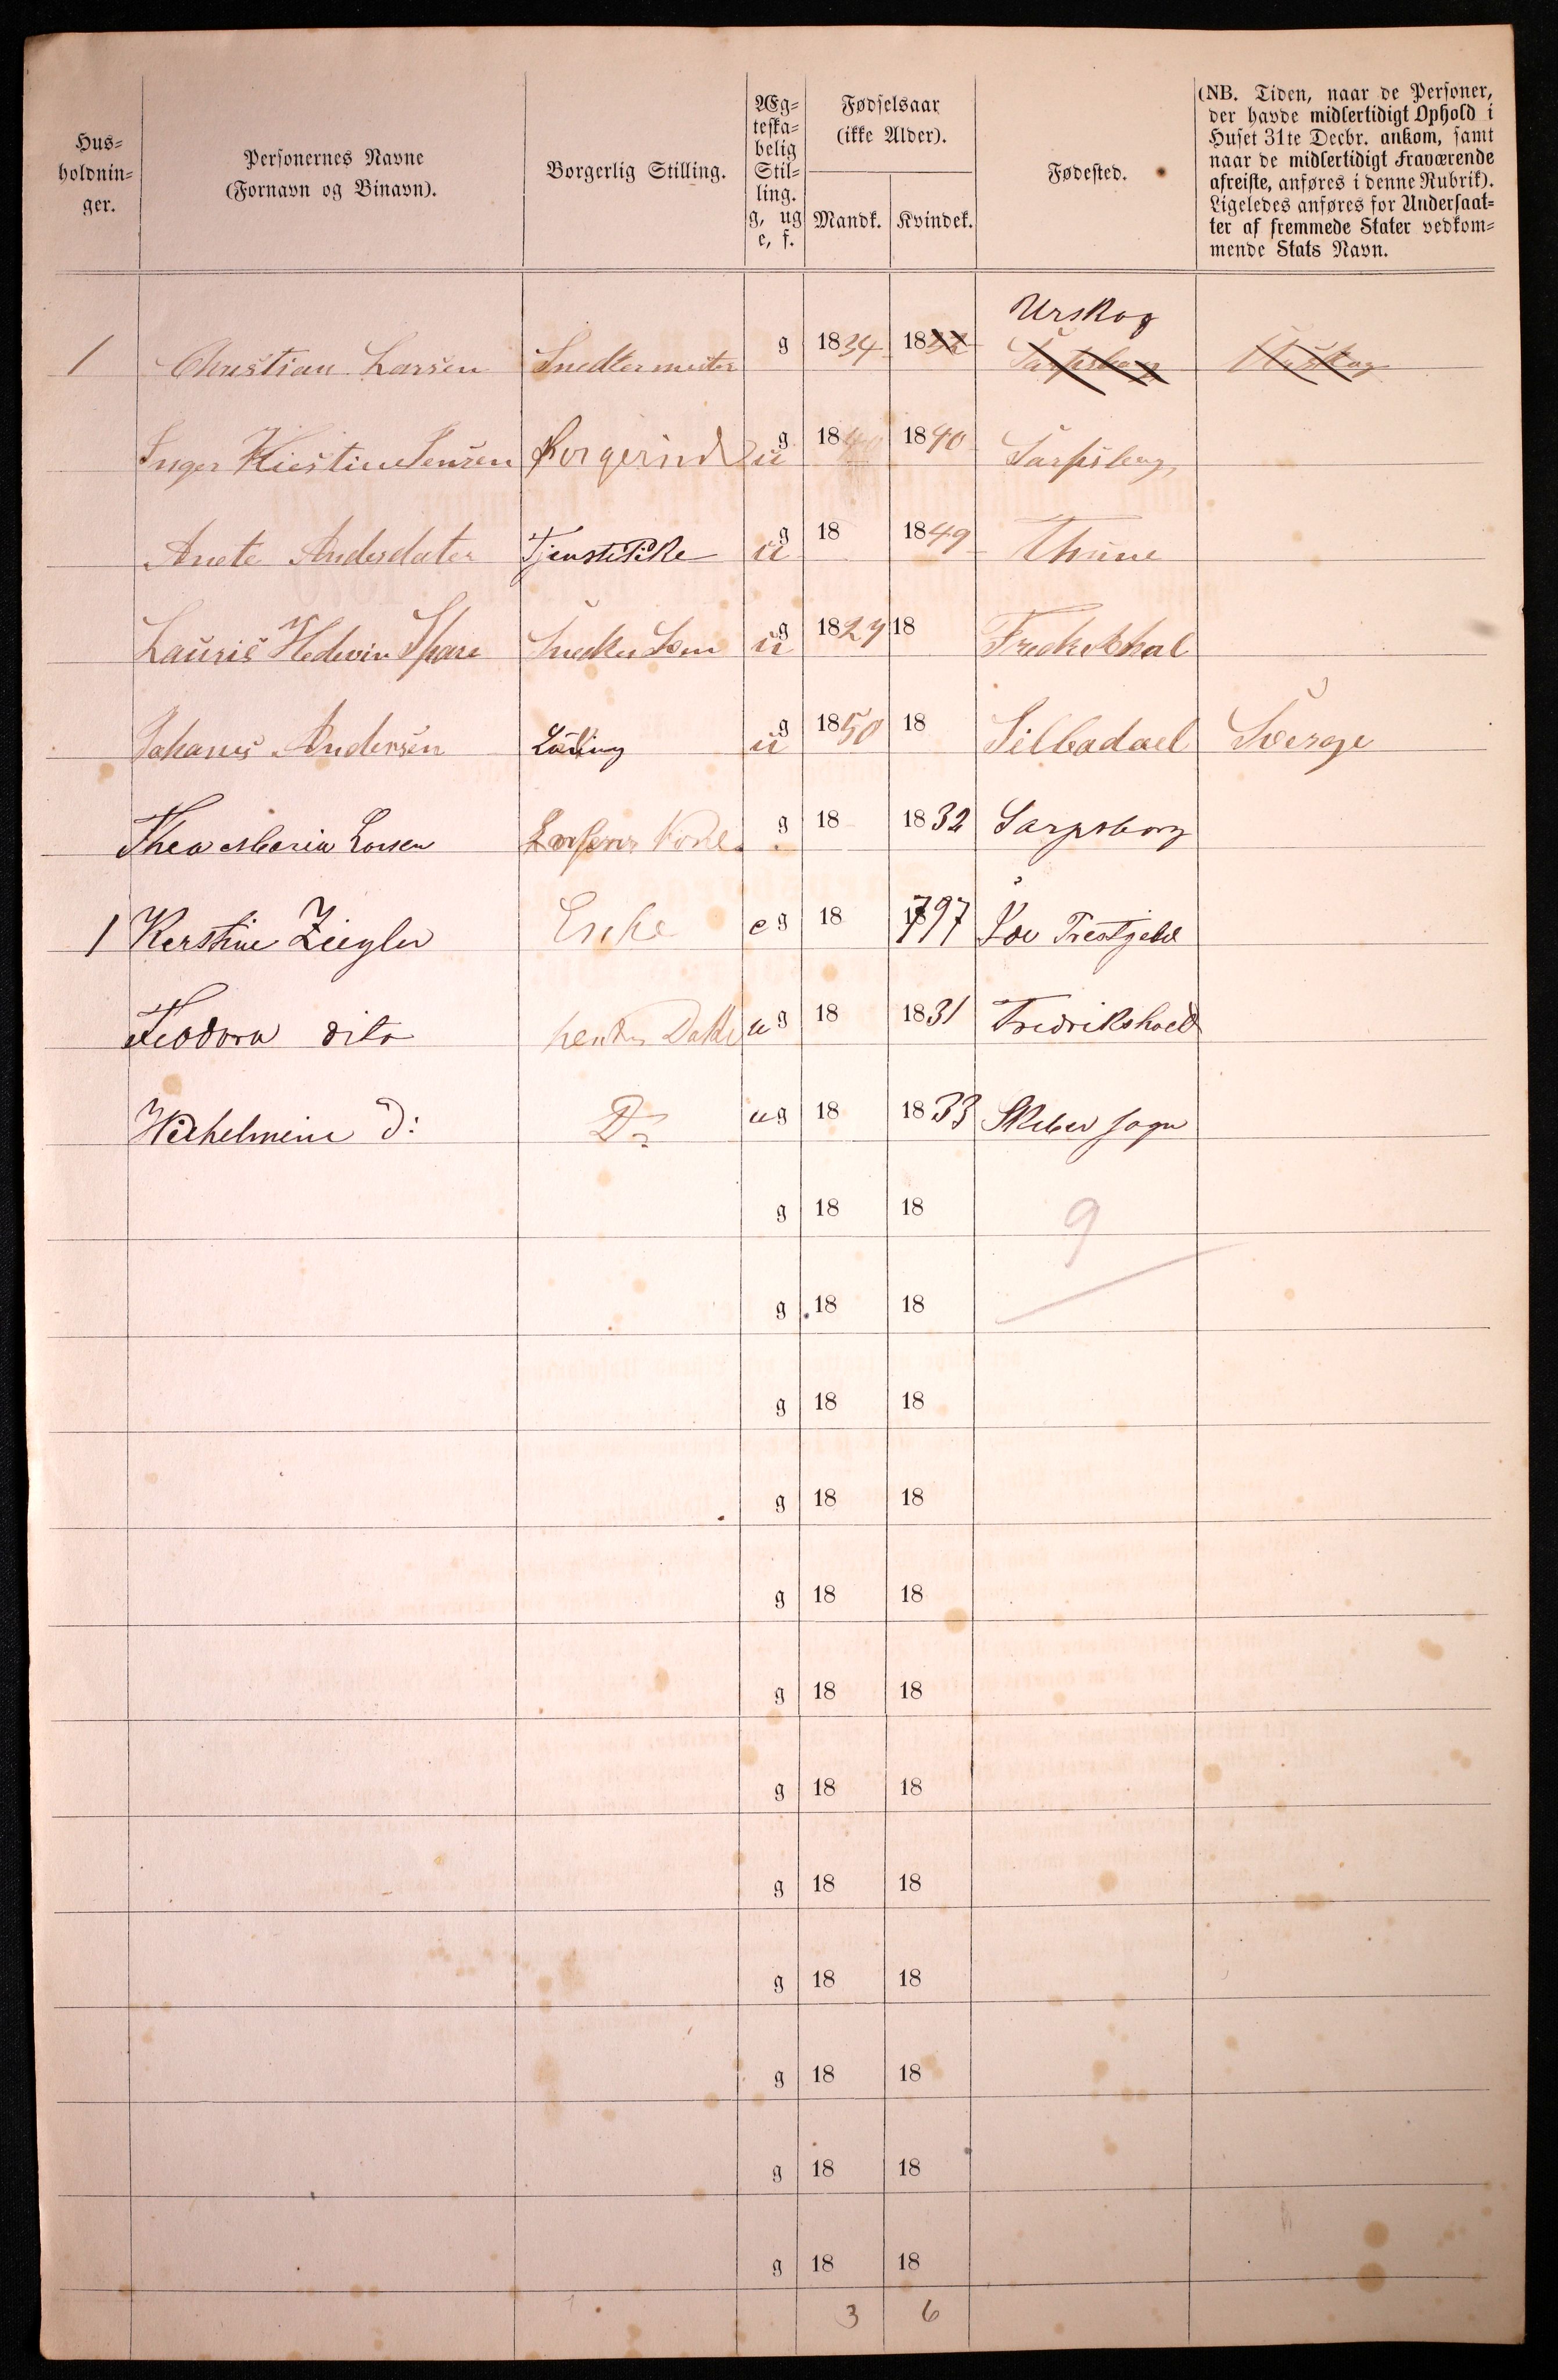 Hus-
holdnin-
ger.
Personernes Navne
(Fornavn og Binavn).
Borgerlig Stilling.
Æg-
teska-
belig
Stil-
ling.
g, ug
e, f.
Fødselsaar
(ikke Alder).
Mandk. Kvindek.
Fødested.
(NB. Tiden, naar de Personer,
der havde midlertidigt Ophold i
Huset 31te Decbr. ankom, samt
naar de midlertidigt Fraværende
afreiste, anføres i denne Rubrik).
Ligeledes anføres for Undersaat-
ter af fremmede Stater vedkom-
mende Stats Navn.
Urskog
1 Christian Larsen Snedkermester g 1834 1832 Sarpsborg Urskog
Inger Kirstine Jensen ug 1840 1840 Sarpsborg
Anete Andersdater Tjenstepike ug 18 1849 Thune
Lauris Hedevin Snedker ug 18 18
Johanes Andersen Läding ug 1850 18 Silbodael Sverge
Thea Maria Larsen Larsens Kone g 18 1832 Sarpsborg
1 Kerstine Ziegler Enke e g 18 1797 Prestgeld
Teodora dito hendes Datter ug 18 1831 Fredrikshald
Wilhelmine d: Do ug 18 1833 Skeber sogn
g 18 18 9
g 18 18
g 18 18
g 18 18
g 18 18
g 18 18
g 18 18
g 18 18
g 18 18
g 18 18
g 18 18
g 18 18
3 6